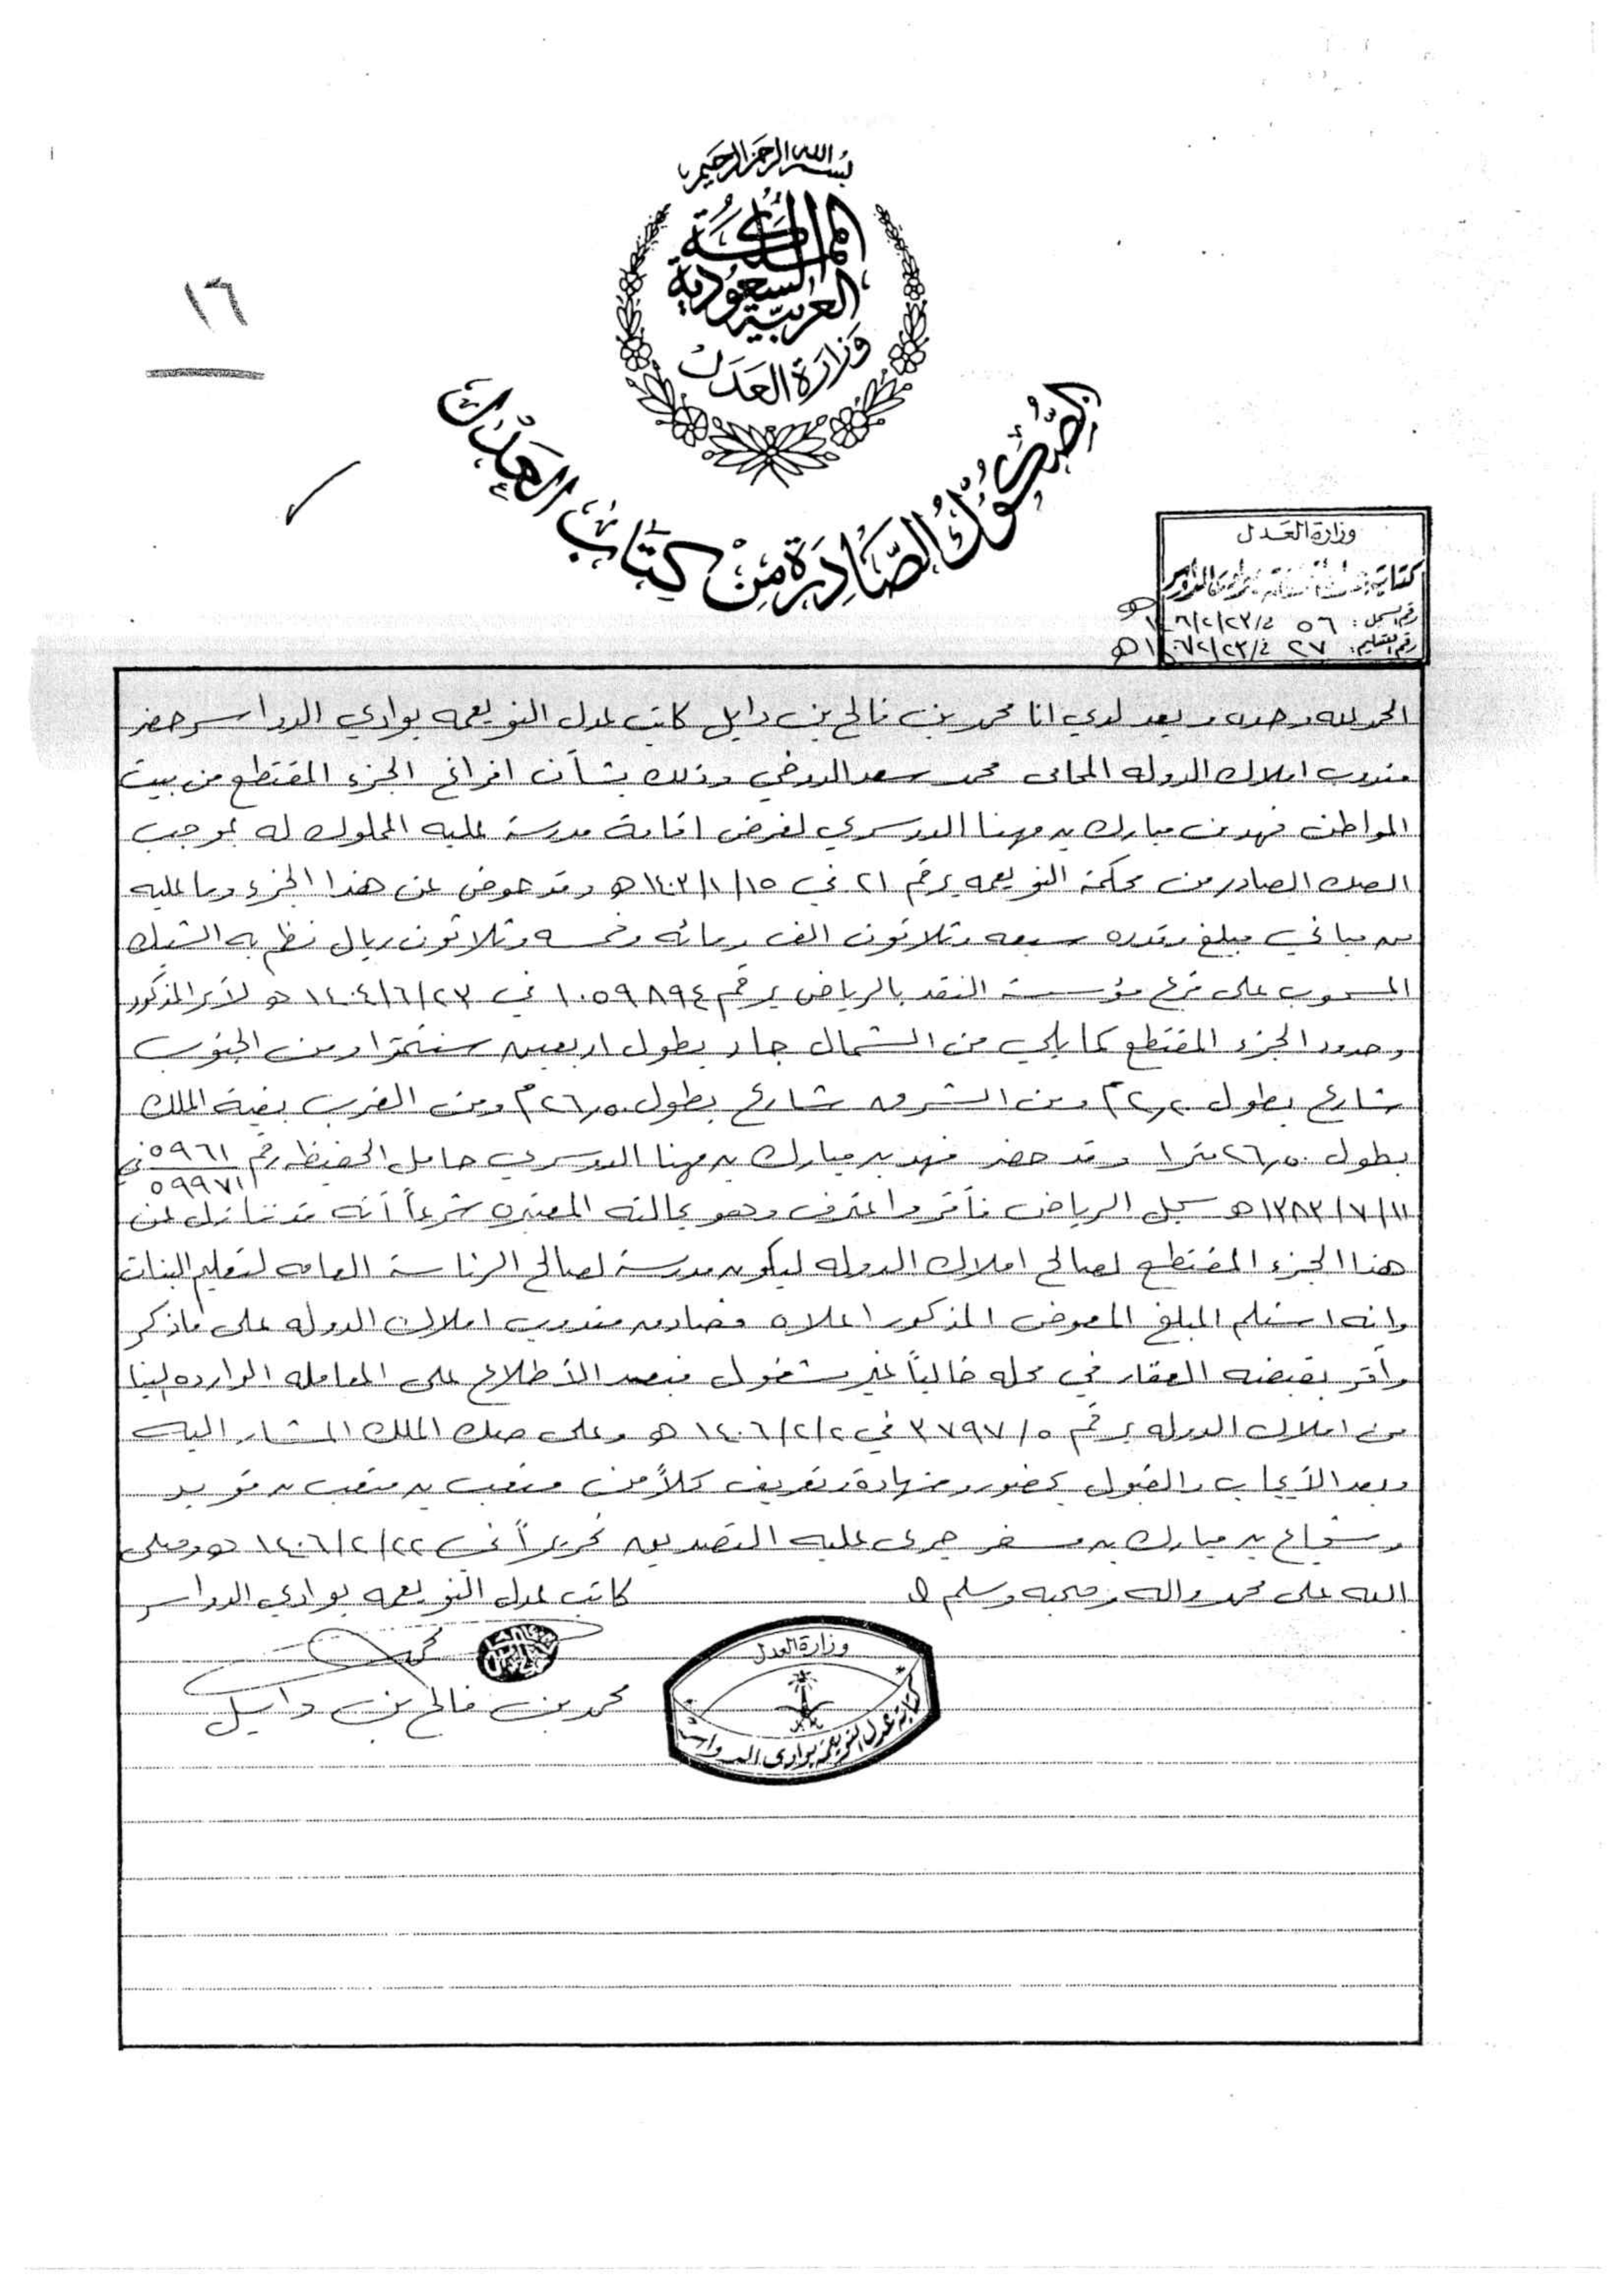 بسم الله الرحمن الرحيم
المملكة العربية السعودية
وزارة العدل
١٦
الصكوك الصادرة من كتاب العدل
وزارة العدل
رقم السجل: ٥٦ في ١٤٠٦/٢/٢٣ هـ
رقم التسليم: ٢٧ في ١٤٠٦/٢/٢٣ هـ
الحمد لله وحده وبعد لدي انا محمد بن فالح بن دايل كاتب عدل النويعمه بوادي الدواسر حضر
مندوب املاك الدوله المحامى محمد سعد الدوخي وذلك بشأن افراغ الجزء المقتطع من بيت
المواطن فهد بن مبارك بن مهنا الدوسري لغرض اقامة مدرسة عليه المملوك له بموجب
الصك الصادر من محكمة النويعمه برقم ٢١ في ١٤٠٣/١/١٥ هـ وقد عوض عن هذا الجزء وما عليه
من مباني مبلغ وقدره سبعه وثلاثون الف ومائه وخمسه وثلاثون ريال نظم به الشيك
المسحوب على فرع مؤسسة النقد بالرياض برقم ١٠٥٩٨٩٤ في ١٤٠٤/٦/٢٣ هـ لأمر المذكور
وحدود الجزء المقتطع كما يلي من الشمال جار بطول اربعين سنتمترا ومن الجنوب
شارع بطول ٢,٢٠م ومن الشرق شارع بطول ٢٦,٥٠م ومن الغرب بقية الملك
بطول ٢٦,٥٠ مترا وقد حضر فهد بن مبارك بن مهنا الدوسري حامل الحفيظه رقم ٥٩٦١ في
٥٩٩٧١
١٣٨٣/٧/١١ هـ سجل الرياض فأقر واعترف وهو بحالته المعتبره شرعاً أنه قد تنازل عن
هذا الجزء المقتطع لصالح املاك الدوله ليكون مدرسة لصالح الرئاسة العامه لتعليم البنات
وانه استلم المبلغ المعوض المذكور اعلاه فصادق مندوب املاك الدوله على ماذكر
وأقر بقبضه العقار في محله خالياً غير مشغول فبعد الأطلاع على المعامله الوارده لينا
من املاك الدوله برقم ٣٧٩٧/٥ في ١٤٠٦/٢/٢ هـ وعلى صك الملك المشار اليه
وبعد الأيجاب والقبول بحضور وشهادة وتعريف كلاً من متعب بن متعب بن قويد
وشجاع بن مبارك بن مسفر جرى عليه التصديق تحريراً في ١٤٠٦/٢/٢٢ هـ وصلى
الله على محمد واله وصحبه وسلم كاتب عدل النويعمه بوادي الدواسر
محمد بن فالح بن دايل
وزارة العدل
كتابة عدل النويعمة بوادى الدواسر